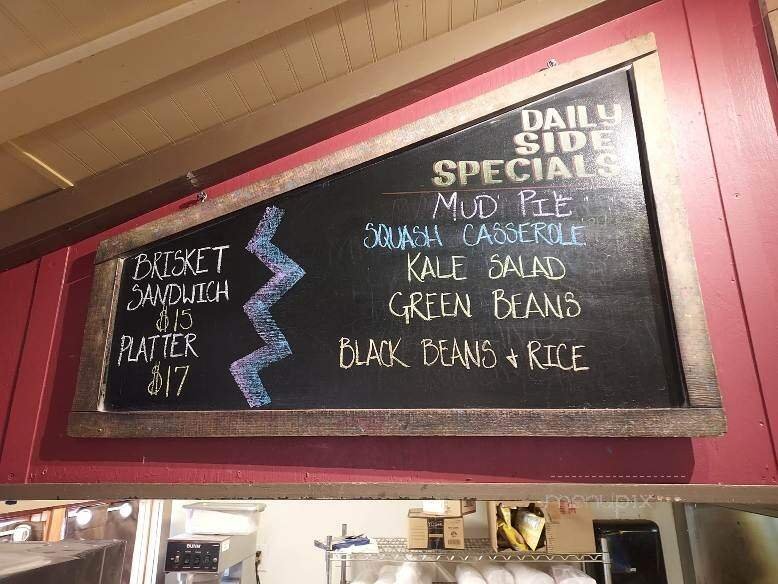 BRISKET
SANDWICH
$15
PLATTER
$17
DAILY
SIDE
SPECIALS
MUD PIE
SQUASH CASSEROLE
KALE SALAD
GREEN BEANS
BLACK BEANS & RICE
BUNN
menupix